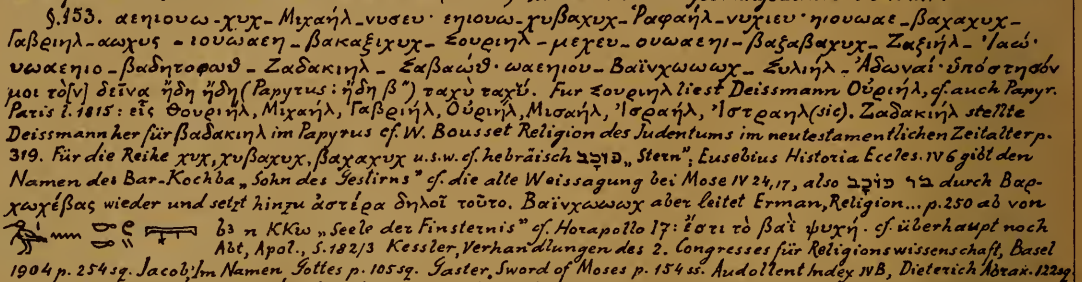 §.153. αεηιουω-χυχ-Μιχαήλ-νυσευ· εηιουω-χυβαχυχ-Ῥαφαήλ-νυχιευ· ηιουωαε-βαχαχυχ-
Γαβριηλ-αωχυς - ιουωαεη-βακαξιχυχ-Σουριηλ-μεχευ-ουωαεηι-βαξαβαχυχ-Ζαξιήλ-Ἰαώ·
υωαεηιο-βαδητοφωθ-Ζαδακιηλ-Σαβαώθ· ωαεηιου-Βαϊνχωωωχ-Συλιήλ-Ἀδωναί· ὑπόστησόν
μοι τὸ[ν] δεῖνα ἤδη ἤδη (Papyrus: ἤδη β") ταχὺ ταχύ. Für Σουριηλ liest Deissmann Οὐριήλ, cf. auch Papyr.
Paris l. 1815: εἰς Θουριήλ, Μιχαήλ, Γαβριήλ, Οὐριήλ, Μισαήλ, Ἰσραήλ, Ἰστραηλ (sic). Ζαδακιήλ stellte
Deissmann her für βαδακιηλ im Papyrus cf. W. Bousset Religion des Judentums im neutestamentlichen Zeitalter p.
319. Für die Reihe χυχ, χυβαχυχ, βαχαχυχ u.s.w. cf. hebräisch כּוֹכָב „Stern"; Eusebius Historia Eccles. IV 6 gibt den
Namen des Bar-Kochba „Sohn des Gestirns" cf. die alte Weissagung bei Mose IV 24,17, also בר כּוֹכָב durch Βαρ-
χωχέβας wieder und setzt hinzu ἀστέρα δηλοῖ τοῦτο. Βαϊνχωωωχ aber leitet Erman, Religion... p. 250 ab von
b3 n KKiw „Seele der Finsternis" cf. Horapollo I 7: ἔστι τὸ βαῒ ψυχή. cf. überhaupt noch
Abt, Apol., S. 182/3 Kessler, Verhandlungen des 2. Congresses für Religionswissenschaft, Basel
1904 p. 254 sq. Jacob, Im Namen Gottes p. 105 sq. Gaster, Sword of Moses p. 154 ss. Audollent Index IV B, Dieterich Abrax. 122 sq.